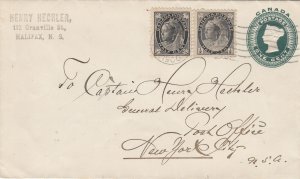 HENRY HECHLER,
113 Granville St.,
HALIFAX, N. S.
CANADA
POSTAGE
ONE CENT
To Captain Henry Hechler
General Delivery
Post Office
New York City
U.S.A.